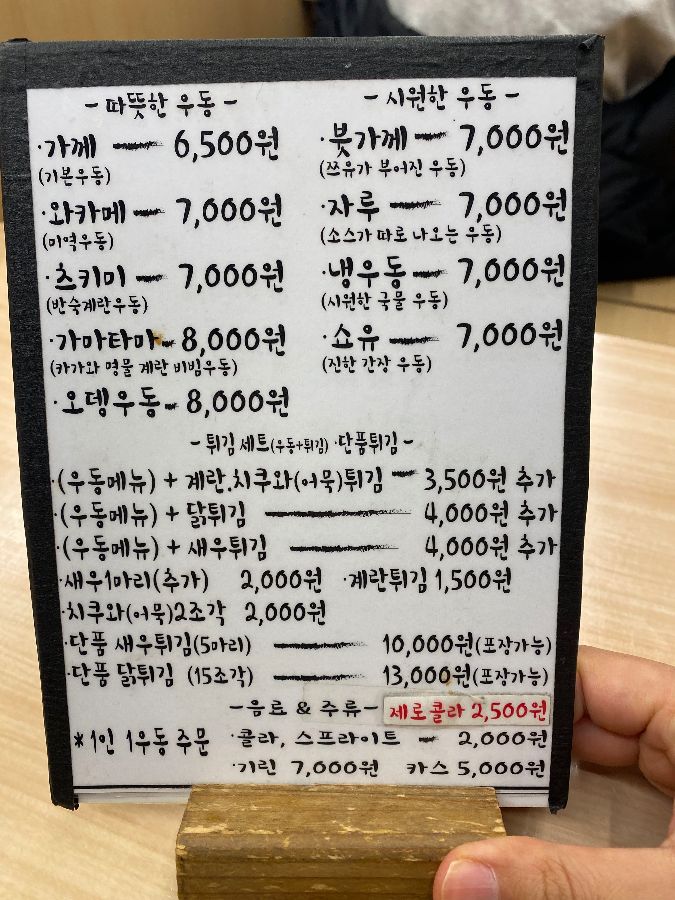 - 따뜻한 우동 -
·가께 — 6,500원
(기본우동)
·와카메 — 7,000원
(미역우동)
·츠키미 — 7,000원
(반숙계란우동)
·가마타마 - 8,000원
(카가와 명물 계란 비빔우동)
·오뎅우동 - 8,000원
- 시원한 우동 -
·붓가께 — 7,000원
(쯔유가 부어진 우동)
·자루 — 7,000원
(소스가 따로 나오는 우동)
·냉우동 — 7,000원
(시원한 국물 우동)
·쇼유 — 7,000원
(진한 간장 우동)
- 튀김 세트(우동+튀김) ·단품튀김 -
·(우동메뉴) + 계란.치쿠와(어묵)튀김 — 3,500원 추가
·(우동메뉴) + 닭튀김 — 4,000원 추가
·(우동메뉴) + 새우튀김 — 4,000원 추가
·새우1마리(추가) 2,000원 ·계란튀김 1,500원
·치쿠와(어묵)2조각 2,000원
·단품 새우튀김(5마리) — 10,000원(포장가능)
·단품 닭튀김 (15조각) — 13,000원(포장가능)
- 음료 & 주류 - 제로콜라 2,500원
*1인 1우동 주문 ·콜라, 스프라이트 - 2,000원
·기린 7,000원 카스 5,000원